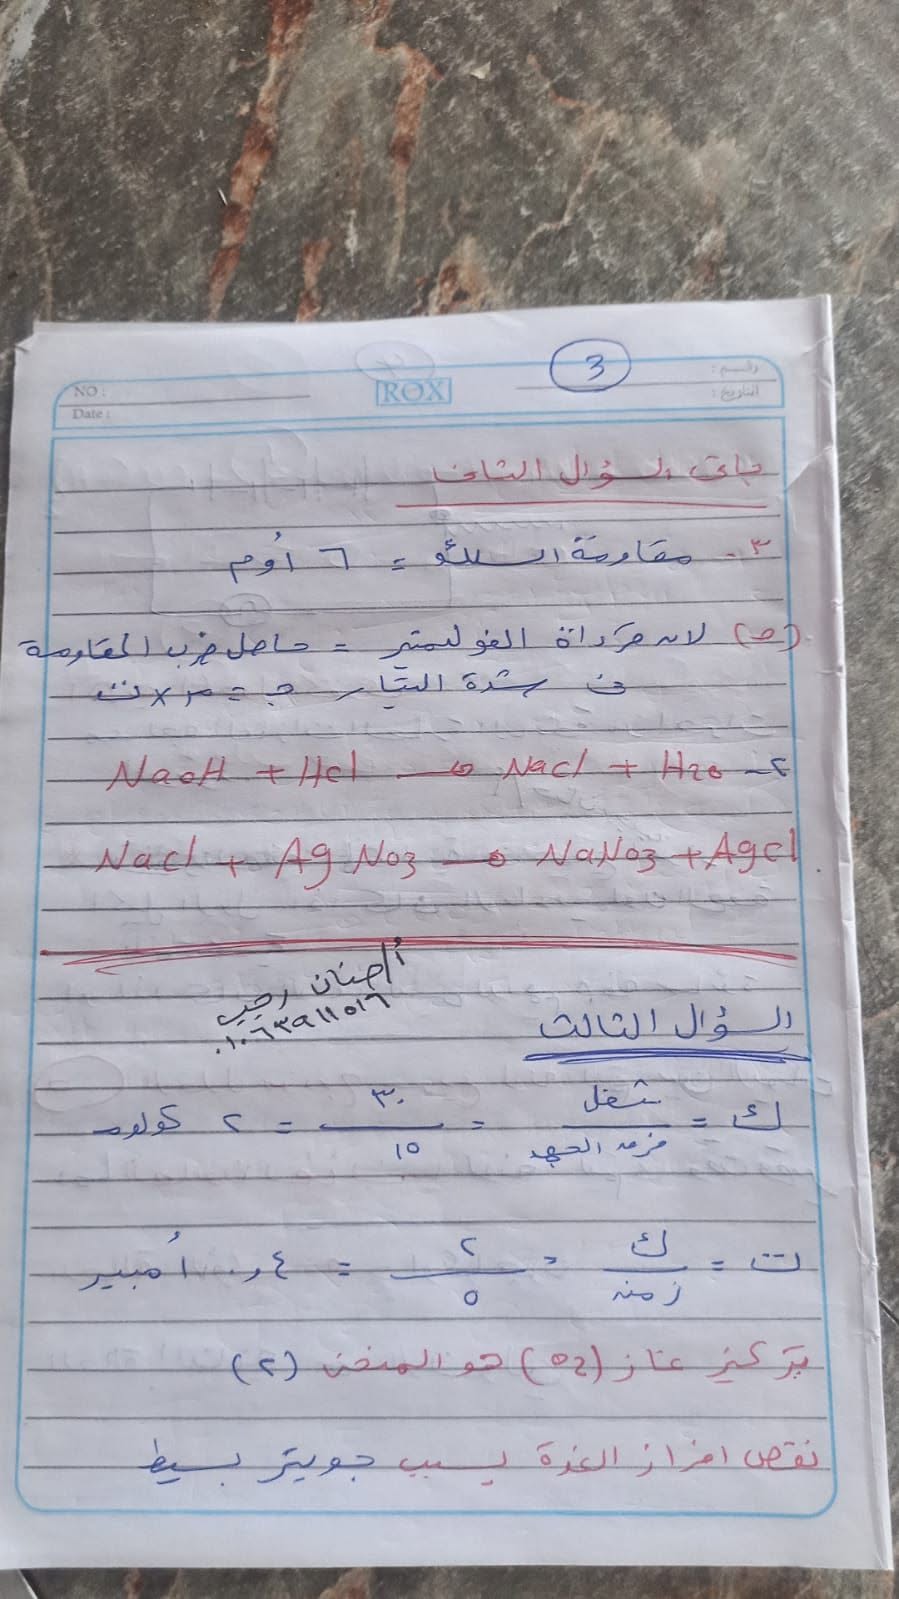 3
NO :
ROX
Date :
التاريخ :
باقى السؤال الثانى
٣- مقاومة السلك = ٦ أوم
(ج) لان قراءة الفولتميتر = حاصل ضرب المقاومة
فى شدة التيار جـ = م × ت
٢- NaOH + Hcl → Nacl + H2o
Nacl + Ag No3 → NaNo3 + Agcl
أ/حنان رجب
٠١٠٦٣٩١١٥١٦
السؤال الثالث
ك = شغل / فرق الجهد = ٣٠ / ١٥ = ٢ كولوم
ت = ك / زمن = ٢ / ٥ = ٤ر٠ أمبير
تركيز غاز (o2) هو المنحنى (٢)
نقص افراز الغدة يسبب جويتر بسيط